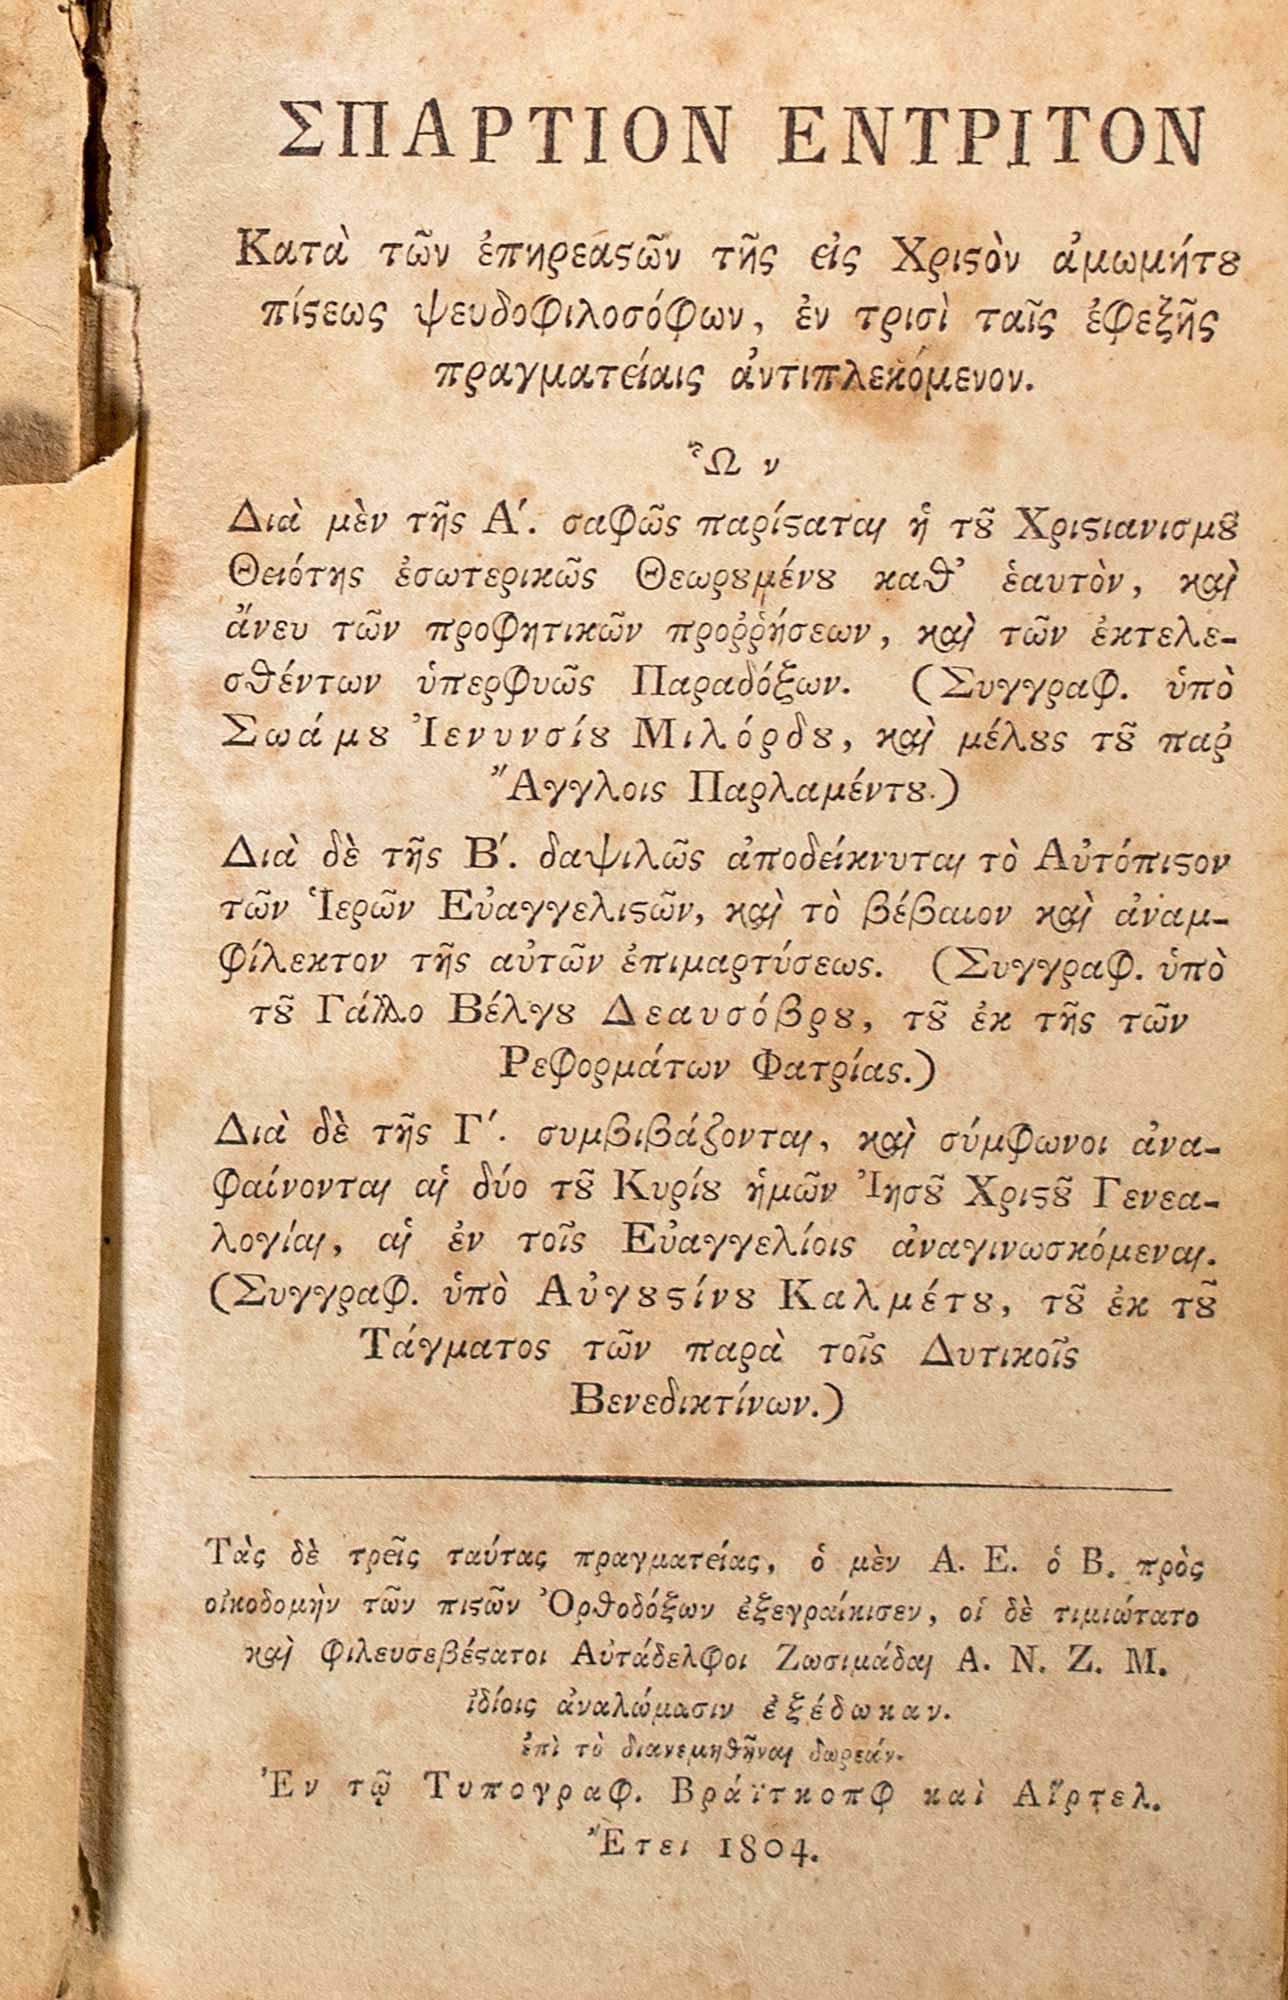 ΣΠΑΡΤΙΟΝ ΕΝΤΡΙΤΟΝ
Κατὰ τῶν ἐπηρεαϛῶν τῆς εἰς Χριϛὸν ἀμωμήτȣ
πίϛεως ψευδοφιλοσόφων, ἐν τρισὶ ταῖς ἐφεξῆς
πραγματείαις ἀντιπλεκόμενον.
Ὧν
Διὰ μὲν τῆς Α΄. σαφῶς παρίϛαται ἡ τȣ͂ Χριϛιανισμȣ͂
Θειότης ἐσωτερικῶς Θεωρȣμένȣ καθ' ἑαυτὸν, καὶ
ἄνευ τῶν προφητικῶν προῤῥήσεων, καὶ τῶν ἐκτελε-
σθέντων ὑπερφυῶς Παραδόξων. (Συγγραφ. ὑπὸ
Σωάμȣ Ἰενυνσίȣ Μιλόρδȣ, καὶ μέλȣς τȣ͂ παρ
Ἄγγλοις Παρλαμέντȣ.)
Διὰ δὲ τῆς Β΄. δαψιλῶς ἀποδείκνυται τὸ Αὐτόπιϛον
τῶν Ἱερῶν Εὐαγγελιϛῶν, καὶ τὸ βέβαιον καὶ ἀναμ-
φίλεκτον τῆς αὐτῶν ἐπιμαρτύσεως. (Συγγραφ. ὑπὸ
τȣ͂ Γάλλο Βέλγȣ Δεαυσόβρȣ, τȣ͂ ἐκ τῆς τῶν
Ρεφορμάτων Φατρίας.)
Διὰ δὲ τῆς Γ΄. συμβιβάζονται, καὶ σύμφωνοι ἀνα-
φαίνονται αἱ δύο τȣ͂ Κυρίȣ ἡμῶν Ἰησȣ͂ Χριϛȣ͂ Γενεα-
λογίαι, αἱ ἐν τοῖς Εὐαγγελίοις ἀναγινωσκόμεναι.
(Συγγραφ. ὑπὸ Αὐγȣϛίνȣ Καλμέτȣ, τȣ͂ ἐκ τȣ͂
Τάγματος τῶν παρὰ τοῖς Δυτικοῖς
Βενεδικτίνων.)
Τὰς δὲ τρεῖς ταύτας πραγματείας, ὁ μὲν Α. Ε. ὁ Β. πρὸς
οἰκοδομὴν τῶν πιϛῶν Ὀρθοδόξων ἐξεγραίκισεν, οἱ δὲ τιμιώτατο
καὶ φιλευσεβέϛατοι Αὐτάδελφοι Ζωσιμάδαι Α. Ν. Ζ. Μ.
ἰδίοις ἀναλώμασιν ἐξέδωκαν.
ἐπὶ τὸ διανεμηθῆναι δωρεάν.
Ἐν τῷ Τυπογραφ. Βράϊτκοπφ καὶ Αἵρτελ.
Ἔτει 1804.